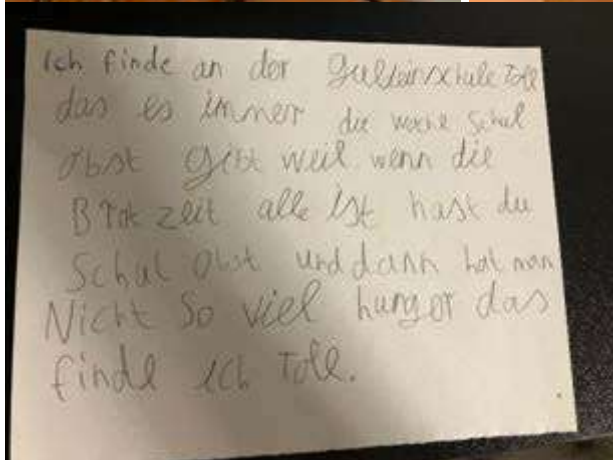 Ich finde an der Toll
das es immer die woche Schul
obst gibt weil wenn die
Brotzeit alle ist hast du
Schul obst und dann hat man
Nicht So viel hunger das
finde ich Toll.